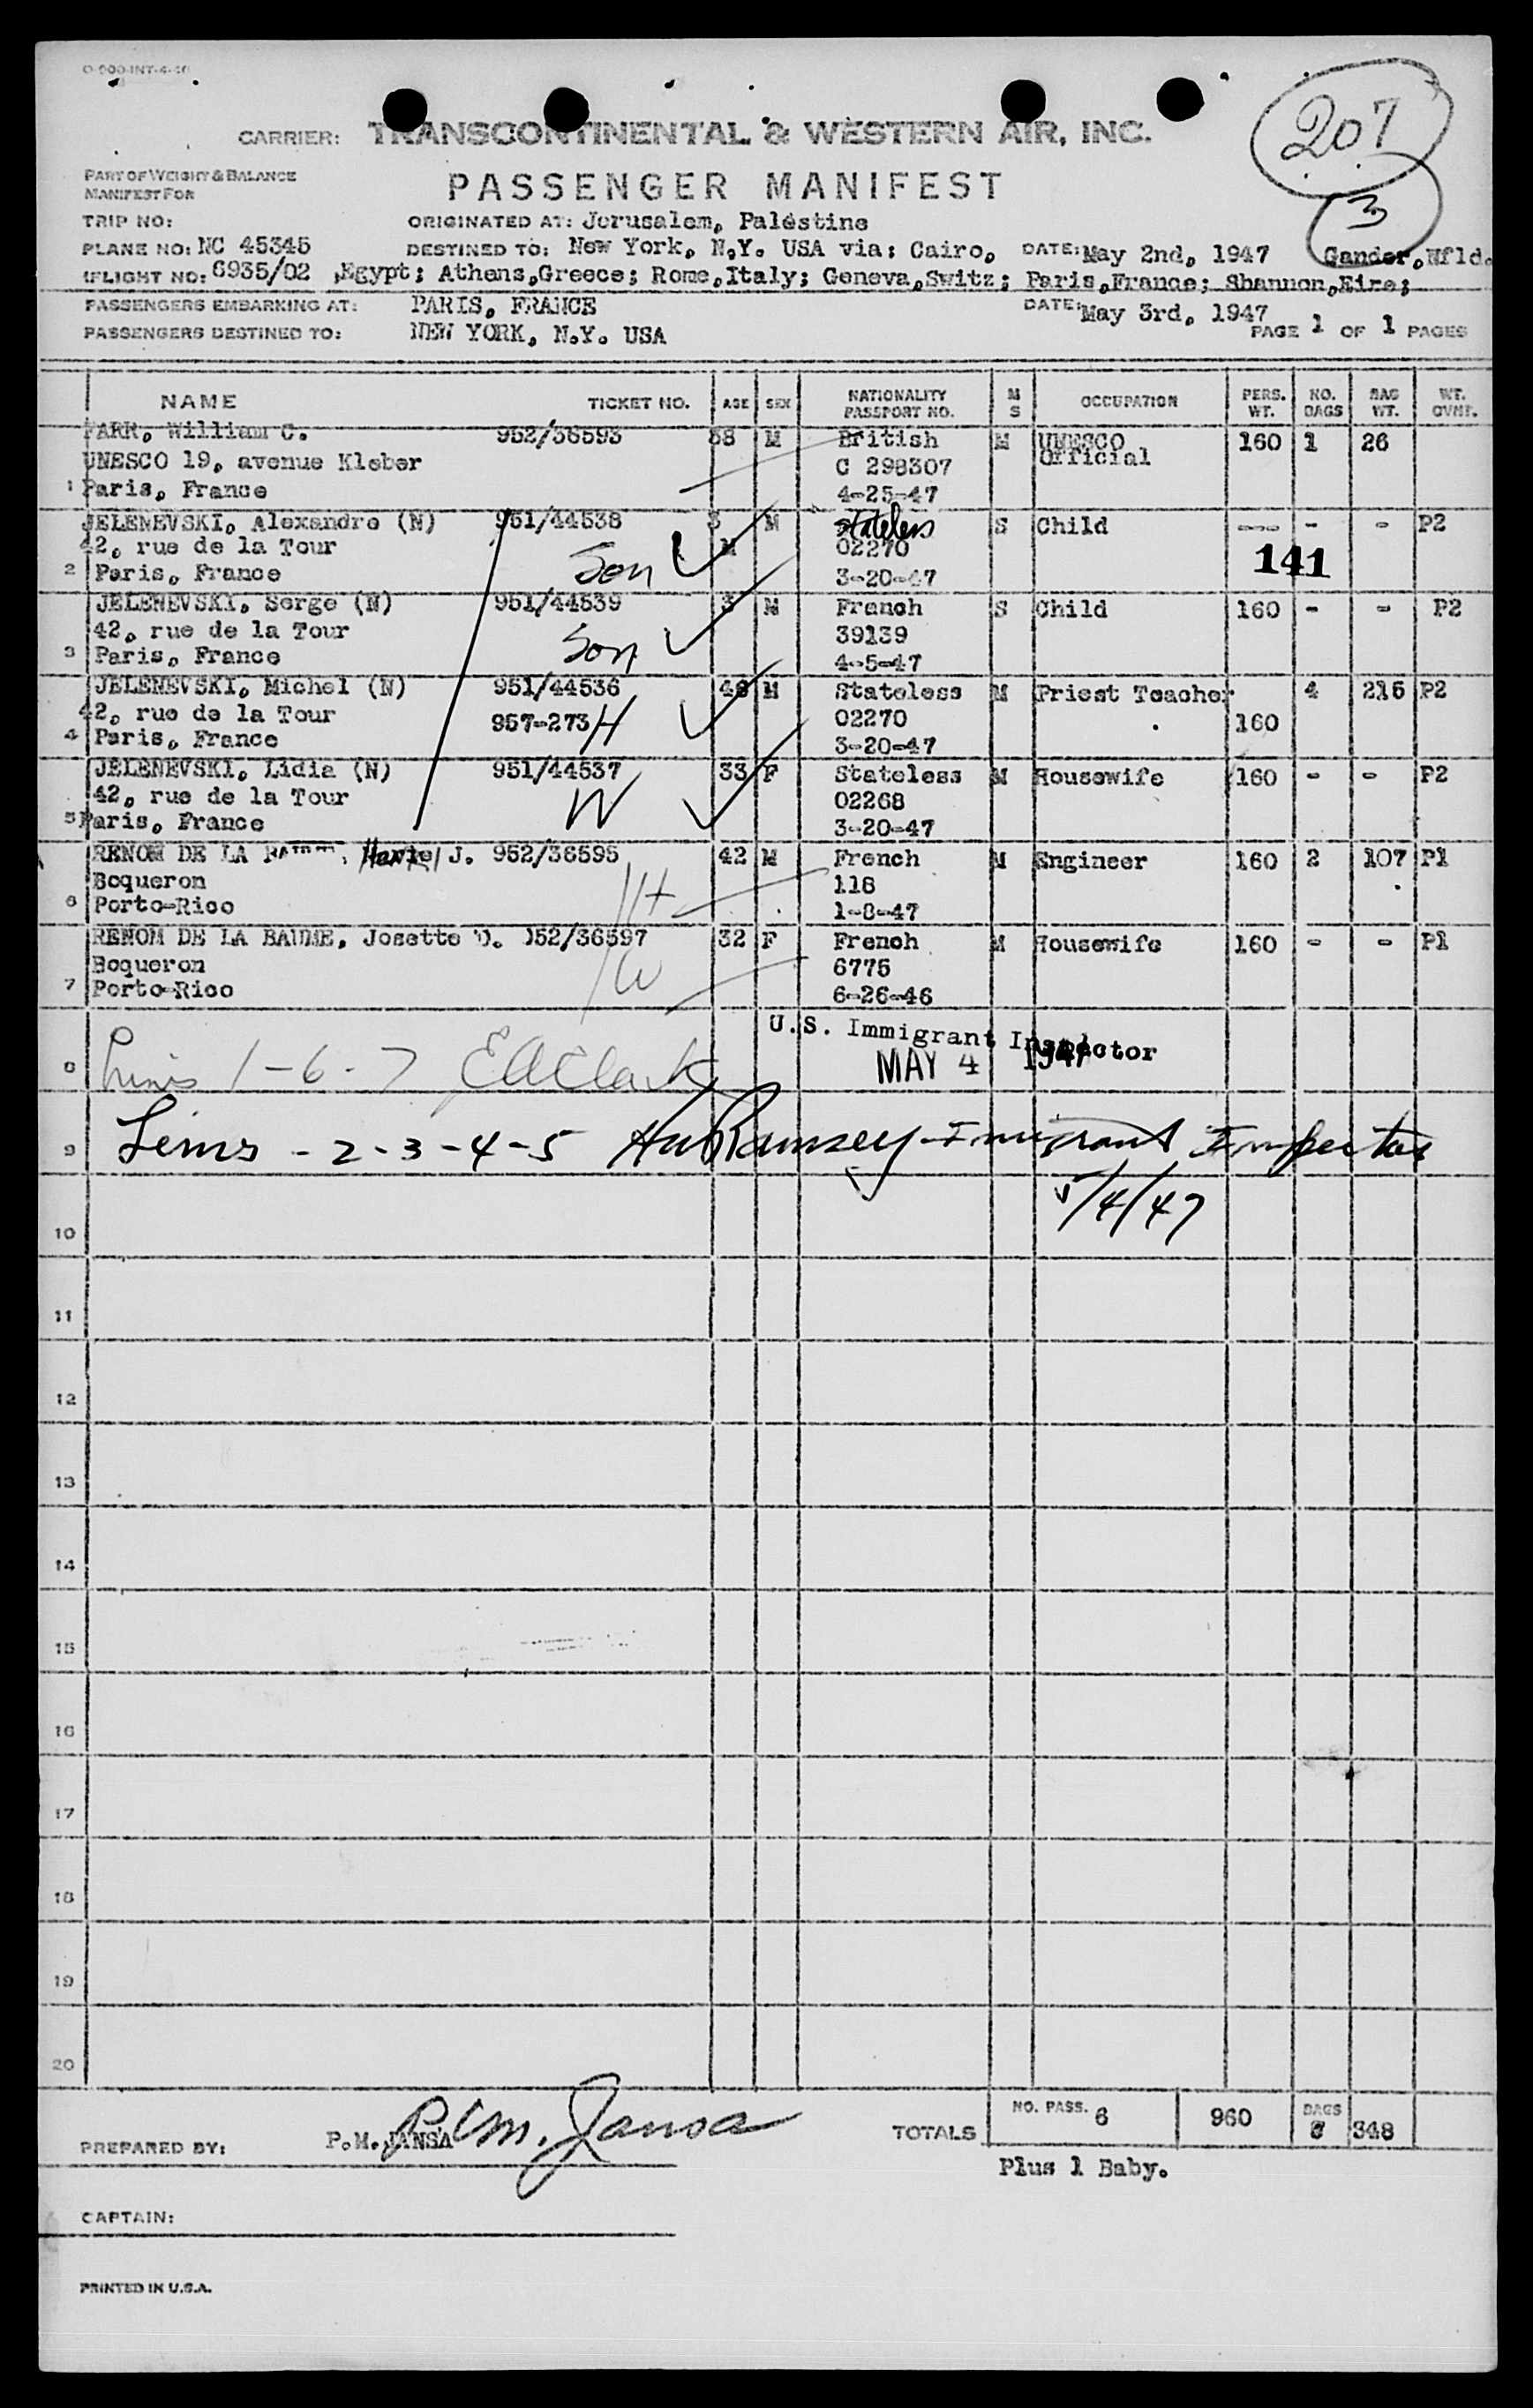 O-900-INT-4-46
207
3
CARRIER: TRANSCONTINENTAL & WESTERN AIR, INC.
PART OF WEIGHT & BALANCE
MANIFEST FOR
PASSENGER MANIFEST
TRIP NO: ORIGINATED AT: Jerusalem, Palestine
PLANE NO: NC 45345 DESTINED TO: New York, N.Y. USA via: Cairo, DATE: May 2nd, 1947 Gander, Nfld.
FLIGHT NO: 6935/02 Egypt; Athens,Greece; Rome,Italy; Geneva,Switz; Paris,France; Shannon,Eire;
PASSENGERS EMBARKING AT: PARIS, FRANCE DATE: May 3rd, 1947
PASSENGERS DESTINED TO: NEW YORK, N.Y. USA PAGE 1 OF 1 PAGES
NAME TICKET NO. AGE SEX NATIONALITY PASSPORT NO. M S OCCUPATION PERS. WT. NO. BAGS BAG WT. WT. OVNT.
FARR, William C. 952/36593 38 M British M UNESCO 160 1 26
UNESCO 19, avenue Kleber C 298307 Official
1 Paris, France 4-25-47
JELENEVSKI, Alexandre (N) 951/44538 3 M stateless S Child --- - - P2
42, rue de la Tour M 02270 141
2 Paris, France Son 3-20-47
JELENEVSKI, Serge (N) 951/44539 3 M French S Child 160 - - P2
42, rue de la Tour 39139
3 Paris, France Son 4-5-47
JELENEVSKI, Michel (N) 951/44536 M Stateless M Priest Teacher 4 215 P2
42, rue de la Tour 957-273 H 02270 160
4 Paris, France 3-20-47
JELENEVSKI, Lidia (N) 951/44537 33 F Stateless M Housewife 160 - - P2
42, rue de la Tour W 02268
5 Paris, France 3-20-47
RENOM DE LA J. 952/36595 42 M French M Engineer 160 2 107 P1
Boqueron H 118
6 Porto-Rico 1-8-47
RENOM DE LA BAUME, Josette D. 952/36597 32 F French M Housewife 160 - - P1
Boqueron W 6775
7 Porto-Rico 6-26-46
U.S. Immigrant Inspector
8 Lines 1-6-7 E A Clark MAY 4 1947
9 Leins - 2-3-4-5 Ramsey - Immigrant Inspector
10 5/4/47
11
12
13
14
15
16
17
18
19
20
PREPARED BY: P.M. JANSA P.M. Jansa TOTALS NO. PASS. 6 960 BAGS 348
Plus 1 Baby.
CAPTAIN:
PRINTED IN U.S.A.